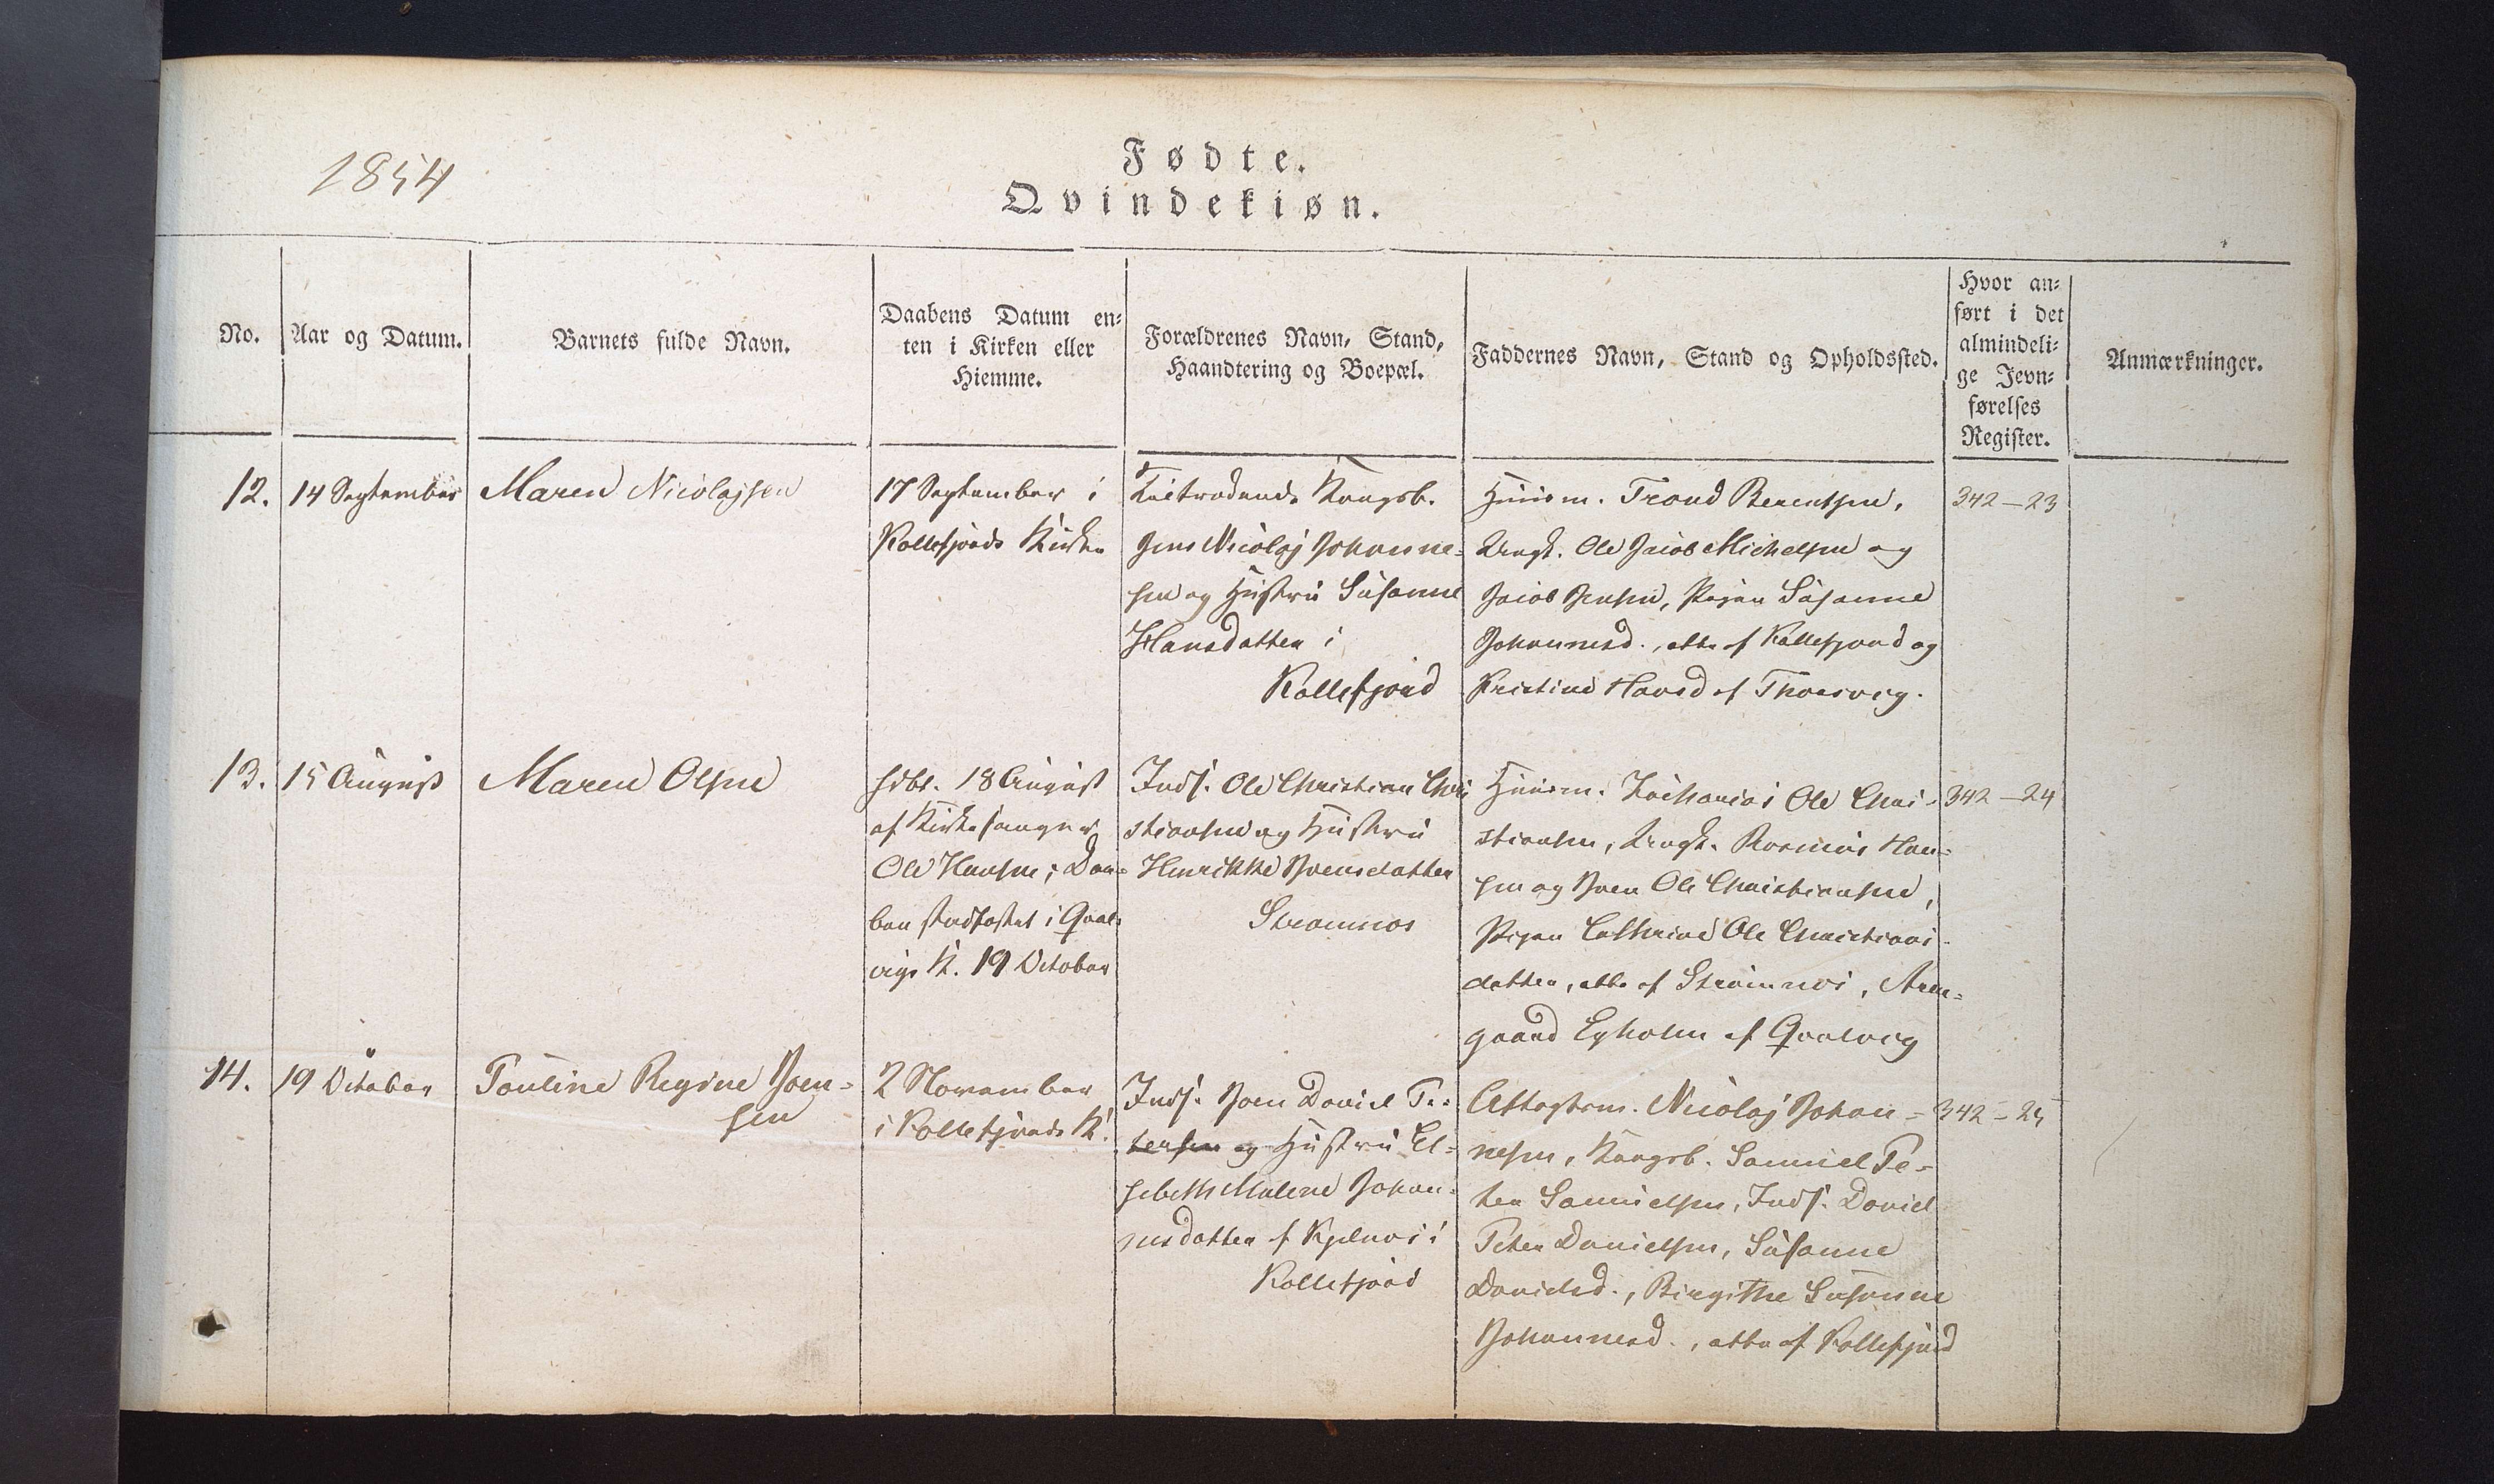 1854
Fødte.
Qvindekiøn.
No.
Aar og Datum.
Barnets fulde Navn.
Daabens Datum en-
ten i Kirken eller
Hiemme.
Forældrenes Navn, Stand,
Haandtering og Boepæl.
Faddernes Navn, Stand og Opholdssted.
Hvor an-
ført i det
almindeli-
ge Jevn-
førelses
Register.
Anmærkninger.
12.
14 September
Maren Nicolajsen
17 September i
Kollefjords Kirke
Kongsb.
Jens Nicolaj Johanne-
sen og Hustru Susanne
Hansdatter i
Kollefjord
Huusm. Trond Berentsen,
Ungk. Ole Jacob Michelsen og
Jacob Jensen, Pigen Susanne
Johannesd., alle af Kollefjord og
Kristine Hansd af Thorsvig.
342-23
13.
15 August
Maren Olsen
hdbt. 18 August
af Kirkesanger
Ole Hansen; Daa-
ben stadfæstet i Qval-
vigs K. 19 October
Inds. Ole Christian Chri
stiansen og Hustru
Henrikke Joensdatter
Strømnæs
Huusm. Zacharias Ole Chri-
stiansen, Ungk. Rasmus Han-
sen og Joen Ole Christiansen,
Pigen Cathrine Ole Christians-
datter, alle af Strømnæs, Arm-
gaard Egholm af Qvalvig
342-24
14.
19 October
Pouline Regine Joen-
sen
2 November
i Kollefjords K.
Inds. Joen David Pe-
tersen og Hustru El-
sebeth Malene Johan-
nesdatter af Kjelnæs i
Kollefjord
Aftægtsm. Nicolaj Johan-
nesen, Kongsb. Samuel Pe-
ter Samuelsen, Inds. Daniel
Peter Danielsen, Susanne
Davidsd., Birgithe Susanne
Johannesd., alle af Kollefjord
342-25